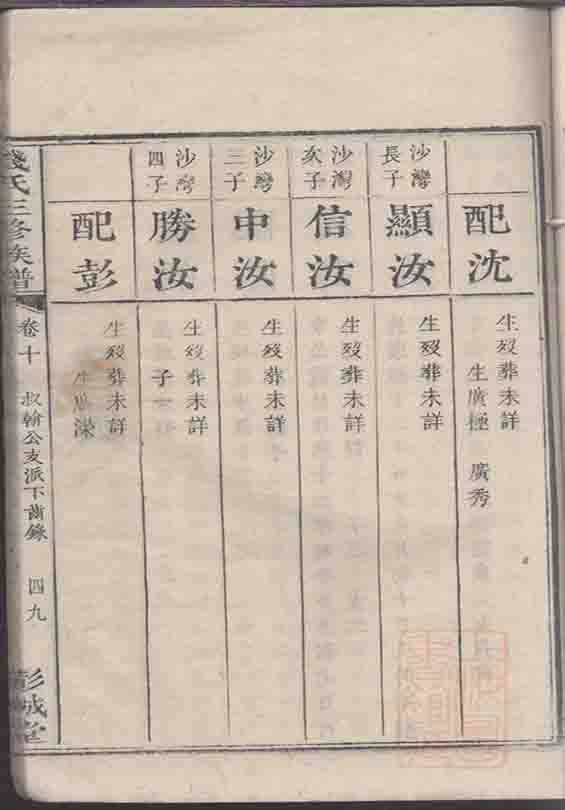 配沈
生歿葬未詳
生廣極 廣秀
沙灣
長子
顯汝
生歿葬未詳
沙灣
次子
信汝
生歿葬未詳
沙灣
三子
申汝
生歿葬未詳
沙灣
四子
勝汝
生歿葬未詳
子
配彭
生歿葬未詳
生廣濚
錢氏三修族譜
卷十
叔翰公支派下齒錄
四九
彭城堂